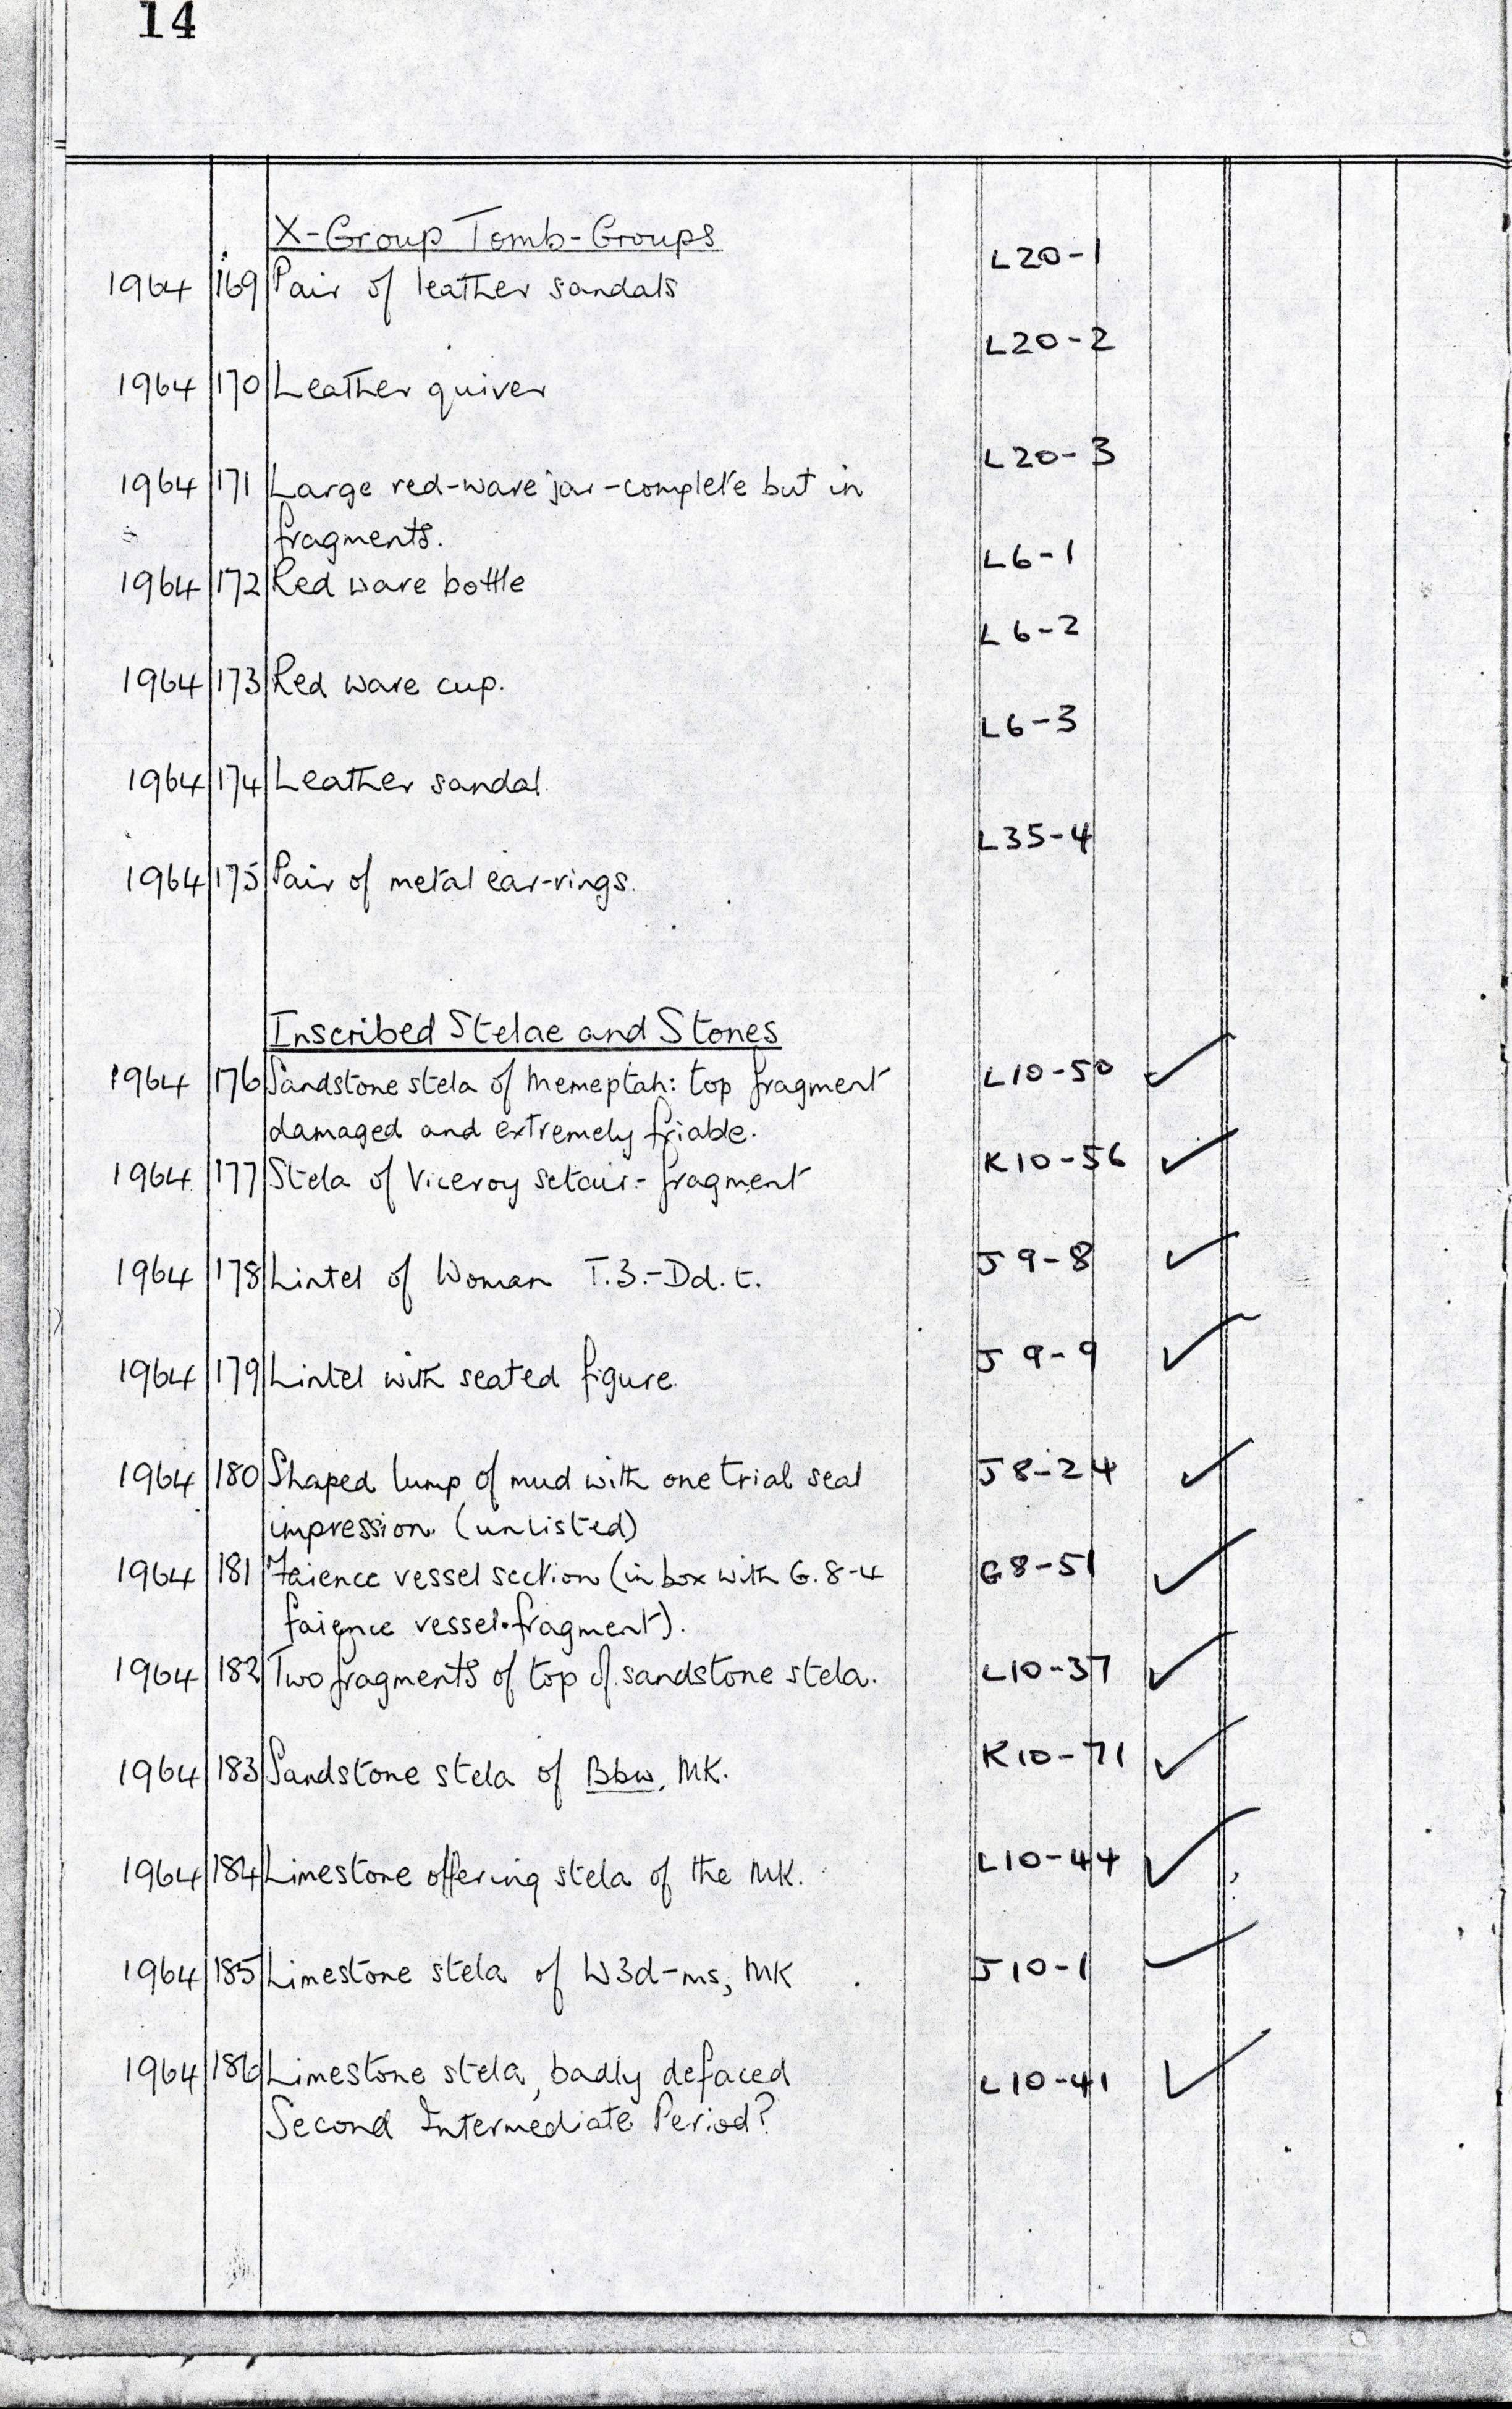 14
X-Group Tomb-Groups
L20-1
1964 169 Pair of leather sandals
L20-2
1964 170 Leather quiver
L20-3
1964 171 Large red-ware jar - complete but in
fragments.
L6-1
1964 172 Red ware bottle
L6-2
1964 173 Red ware cup.
L6-3
1964 174 Leather sandal.
L35-4
1964 175 Pair of metal ear-rings.
Inscribed Stelae and Stones
1964 176 Sandstone stela of Merneptah: top fragment L10-50 ✓
damaged and extremely friable.
1964 177 Stela of Viceroy Setau - fragment K10-56 ✓
1964 178 Lintel of Woman T.3.-Dd.t. J9-8 ✓
1964 179 Lintel with seated figure. J9-9 ✓
1964 180 Shaped lump of mud with one trial seal J8-24 ✓
impression. (unlisted)
1964 181 Faience vessel section (in box with G.8-4 G8-51 ✓
faience vessel fragment).
1964 182 Two fragments of top of sandstone stela. L10-37 ✓
1964 183 Sandstone stela of Bbw, MK. K10-71 ✓
1964 184 Limestone offering stela of the MK. L10-44 ✓
1964 185 Limestone stela of W3d-ms, MK J10-1 ✓
1964 186 Limestone stela, badly defaced L10-41 ✓
Second Intermediate Period?